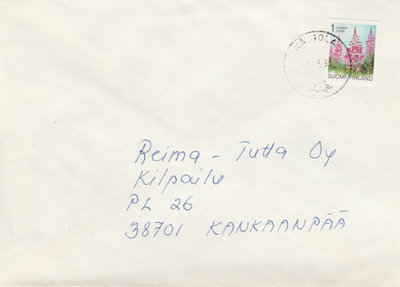 1
SUOMI FINLAND
Reima - Tutta Oy
Kilpailu
PL 26
38701 KANKAANPÄÄ